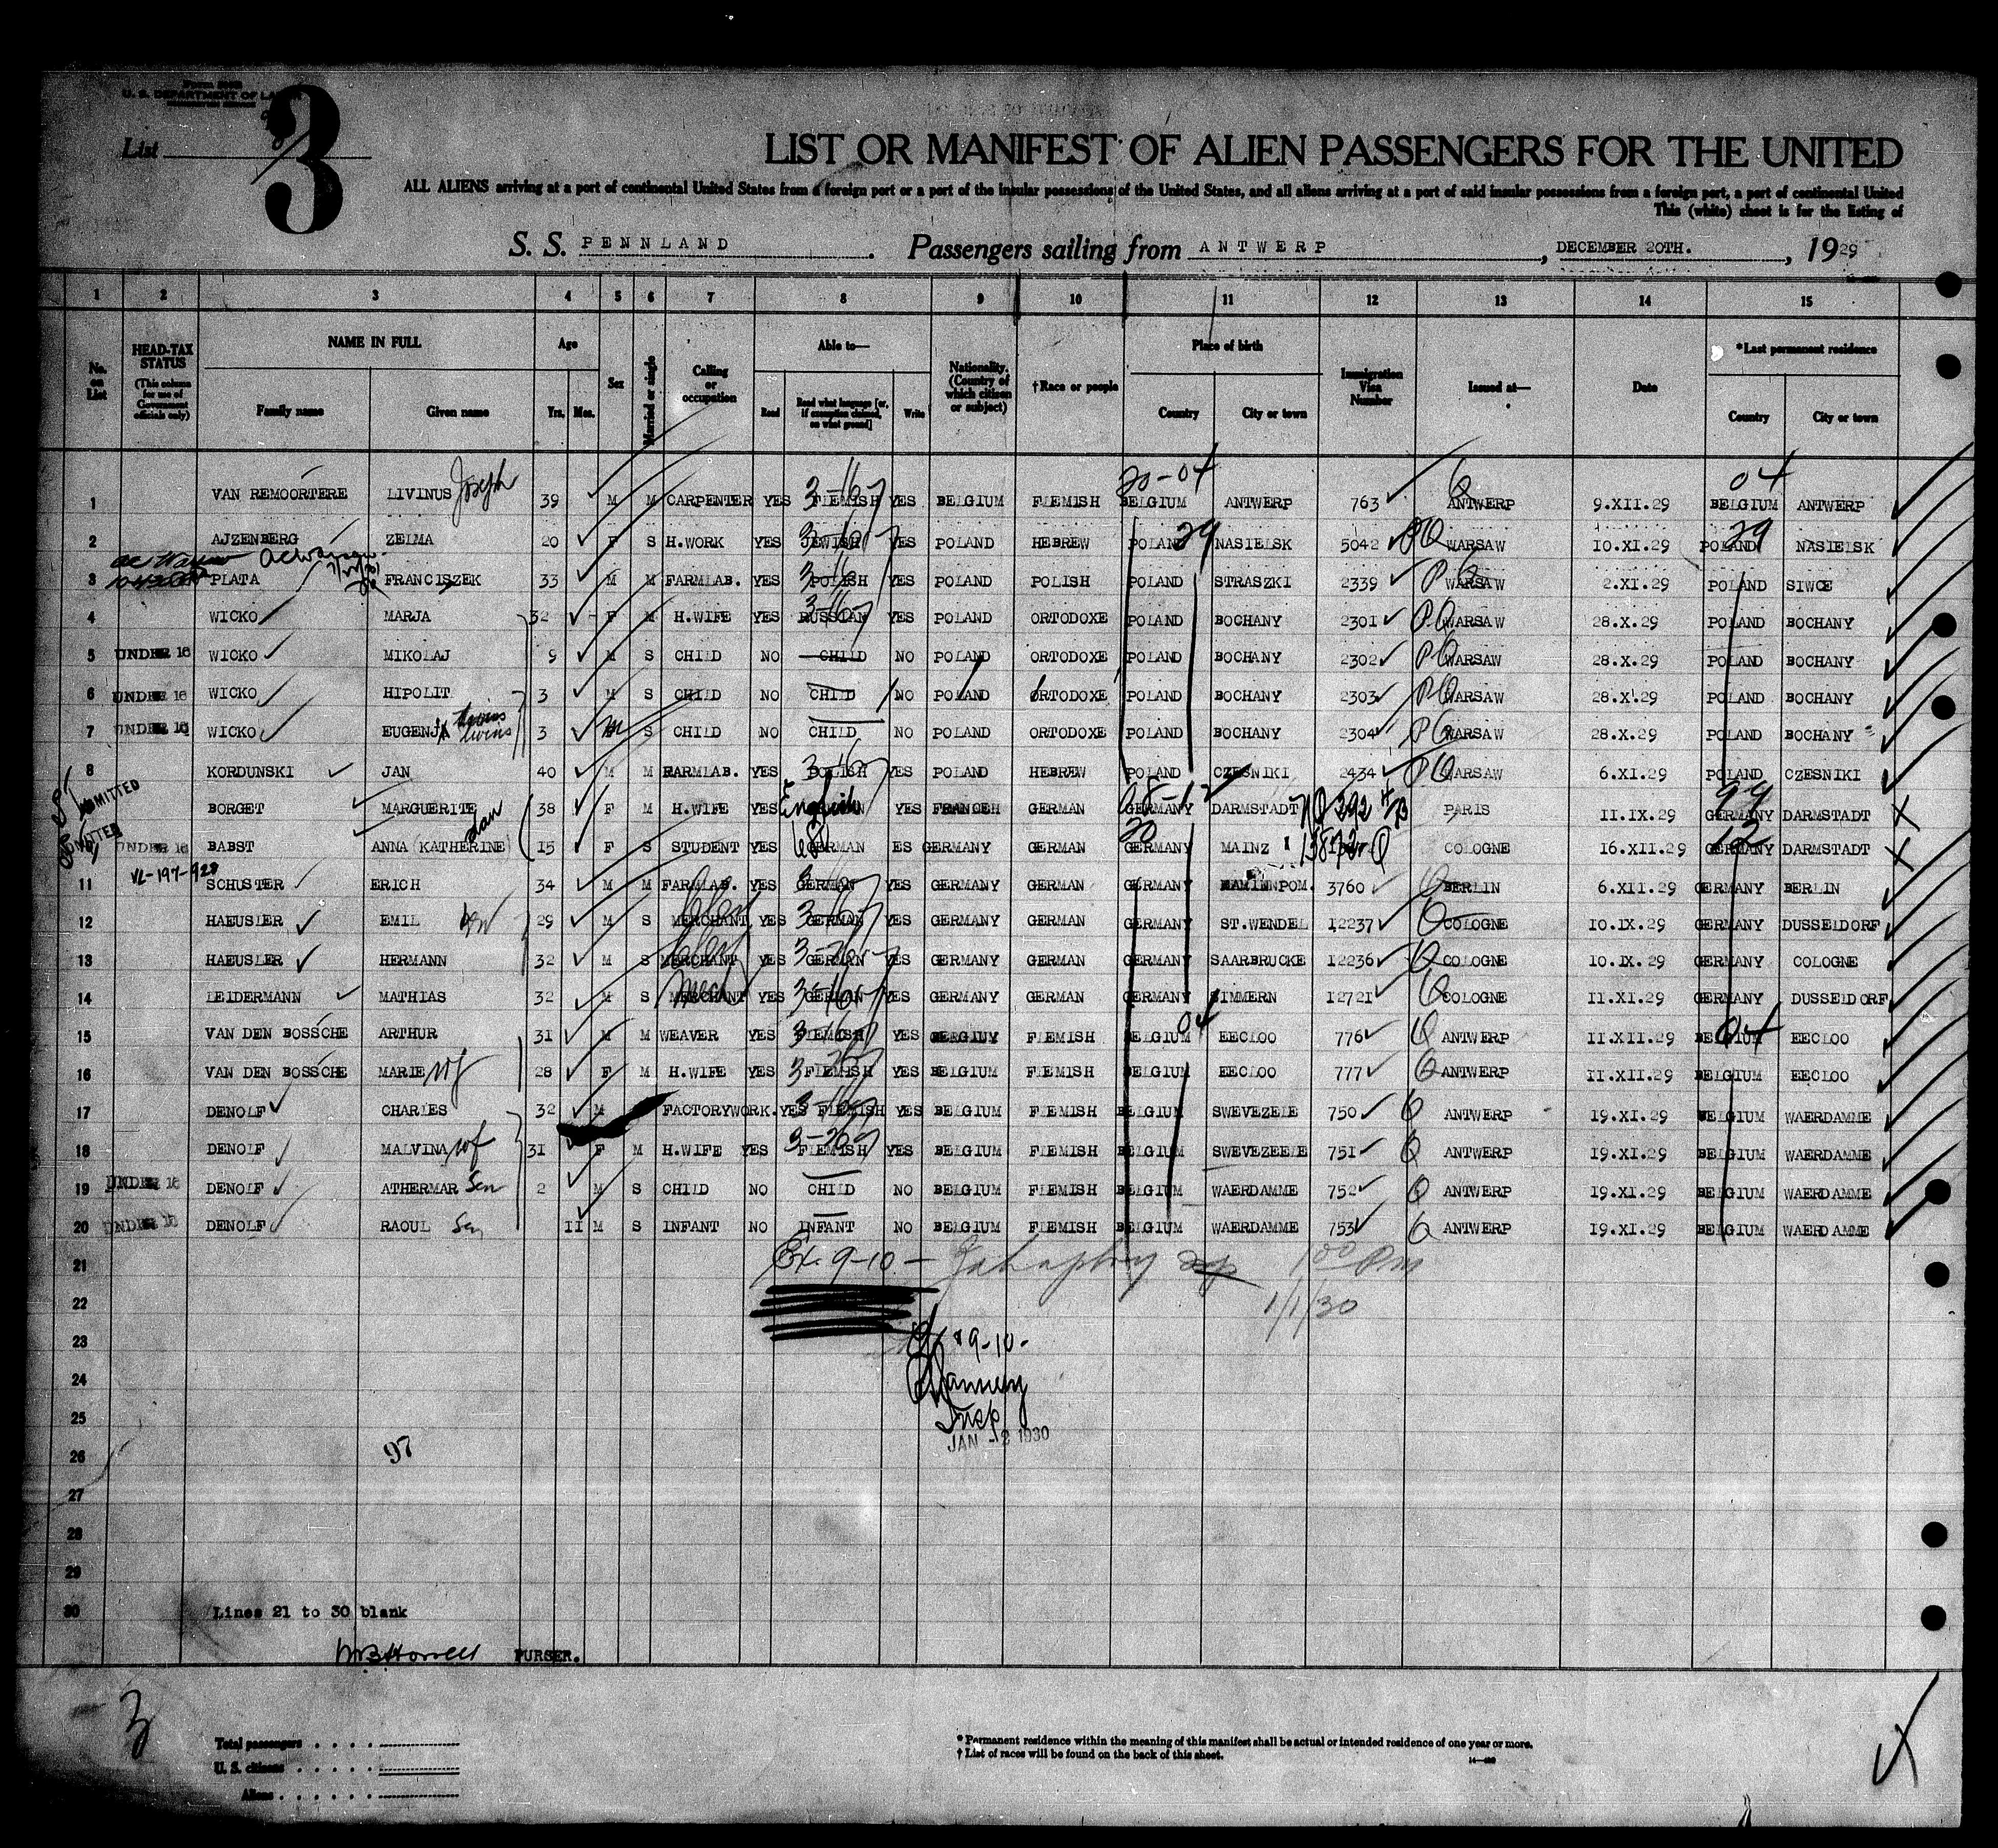 U. S. DEPARTMENT OF LABOR
List 3
LIST OR MANIFEST OF ALIEN PASSENGERS FOR THE UNITED
ALL ALIENS arriving at a port of continental United States from a foreign port or a port of the insular possessions of the United States, and all aliens arriving at a port of said insular possessions from a foreign port, a port of continental United
This (white) sheet is for the listing of
S. S. PENNLAND. Passengers sailing from ANTWERP, DECEMBER 20TH., 1929
1 2 3 4 5 6 7 8 9 10 11 12 13 14 15
No. on List HEAD-TAX STATUS (This column for use of Government officials only) NAME IN FULL Family name Given name Age Yrs. Mos. Sex Married or single Calling or occupation Able to— Read Read what language [or, if exemption claimed, on what ground] Write Nationality. (Country of which citizen or subject) †Race or people Place of birth Country City or town Immigration Visa Number Issued at— Date *Last permanent residence Country City or town
20-04 04
1 VAN REMOORTERE LIVINUS Joseph 39 M M CARPENTER YES FLEMISH YES BELGIUM FLEMISH BELGIUM ANTWERP 763 ANTWERP 9.XII.29 BELGIUM ANTWERP
2 AJZENBERG ZELMA 20 F S H.WORK YES JEWISH YES POLAND HEBREW POLAND 29 NASIELSK 5042 WARSAW 10.XI.29 POLAND 29 NASIELSK
3 PLATA FRANCISZEK 33 M M FARMLAB. YES POLISH YES POLAND POLISH POLAND STRASZKI 2339 WARSAW 2.XI.29 POLAND SIWCE
4 WICKO MARJA 32 F M H.WIFE YES RUSSIAN YES POLAND ORTODOXE POLAND BOCHANY 2301 WARSAW 28.X.29 POLAND BOCHANY
5 UNDER 16 WICKO MIKOLAJ 9 M S CHILD NO CHILD NO POLAND ORTODOXE POLAND BOCHANY 2302 WARSAW 28.X.29 POLAND BOCHANY
6 UNDER 16 WICKO HIPOLIT 3 M S CHILD NO CHILD NO POLAND ORTODOXE POLAND BOCHANY 2303 WARSAW 28.X.29 POLAND BOCHANY
7 UNDER 16 WICKO EUGENJA twins 3 M S CHILD NO CHILD NO POLAND ORTODOXE POLAND BOCHANY 2304 WARSAW 28.X.29 POLAND BOCHANY
8 KORDUNSKI JAN 40 M M FARMLAB. YES POLISH YES POLAND HEBREW POLAND CZESNIKI 2434 WARSAW 6.XI.29 POLAND CZESNIKI
ADMITTED BORGET MARGUERITE 38 F M H.WIFE YES English YES FRANCEH GERMAN GERMANY DARMSTADT NQ 292 PARIS 11.IX.29 GERMANY DARMSTADT
UNDER 16 BABST ANNA (KATHERINE) dau 15 F S STUDENT YES GERMAN ES GERMANY GERMAN GERMANY MAINZ COLOGNE 16.XII.29 GERMANY DARMSTADT
11 SCHUSTER ERICH 34 M M FARMLAB. YES GERMAN YES GERMANY GERMAN GERMANY 3760 BERLIN 6.XII.29 GERMANY BERLIN
12 HAEUSLER EMIL 29 M S MERCHANT YES GERMAN YES GERMANY GERMAN GERMANY ST.WENDEL 12237 COLOGNE 10.IX.29 GERMANY DUSSELDORF
13 HAEUSLER HERMANN 32 M S MERCHANT YES GERMAN YES GERMANY GERMAN GERMANY SAARBRUCKE 12236 COLOGNE 10.IX.29 GERMANY COLOGNE
14 LEIDERMANN MATHIAS 32 M S MERCHANT YES GERMAN YES GERMANY GERMAN GERMANY SIMMERN 12721 COLOGNE 11.XI.29 GERMANY DUSSELDORF
15 VAN DEN BOSSCHE ARTHUR 31 M M WEAVER YES FLEMISH YES BELGIUM FLEMISH BELGIUM 04 EECLOO 776 ANTWERP 11.XII.29 BELGIUM 04 EECLOO
16 VAN DEN BOSSCHE MARIE wf 28 F M H.WIFE YES FLEMISH YES BELGIUM FLEMISH BELGIUM EECLOO 777 ANTWERP 11.XII.29 BELGIUM EECLOO
17 DENOLF CHARLES 32 M FACTORYWORK. YES FLEMISH YES BELGIUM FLEMISH BELGIUM SWEVEZELE 750 ANTWERP 19.XI.29 BELGIUM WAERDAMME
18 DENOLF MALVINA wf 31 F M H.WIFE YES FLEMISH YES BELGIUM FLEMISH BELGIUM SWEVEZEELE 751 ANTWERP 19.XI.29 BELGIUM WAERDAMME
19 UNDER 16 DENOLF ATHERMAR Son 2 M S CHILD NO CHILD NO BELGIUM FLEMISH BELGIUM WAERDAMME 752 ANTWERP 19.XI.29 BELGIUM WAERDAMME
20 UNDER 16 DENOLF RAOUL Son 11 M S INFANT NO INFANT NO BELGIUM FLEMISH BELGIUM WAERDAMME 753 ANTWERP 19.XI.29 BELGIUM WAERDAMME
21 Ex. 9-10 - 1 00 Pm
22 1/1/30
23 9-10-
24
25 Insp
JAN -2 1930
26 97
27
28
29
30 Lines 21 to 30 blank
PURSER.
3
Total passengers
U. S. citizens
Aliens
* Permanent residence within the meaning of this manifest shall be actual or intended residence of one year or more.
† List of races will be found on the back of this sheet.